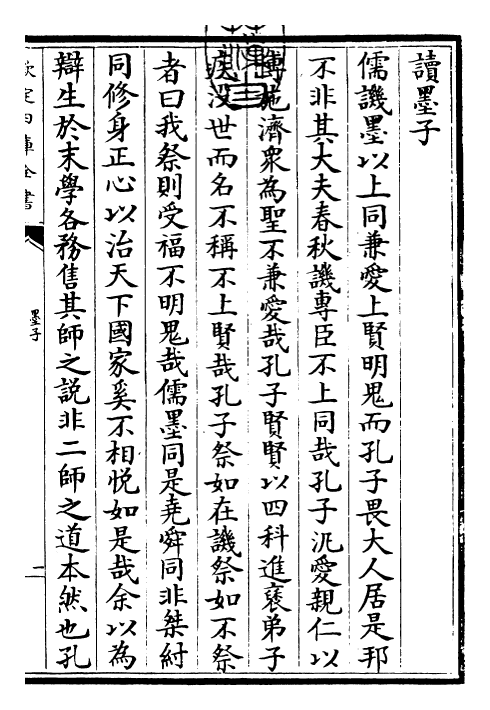 讀墨子
儒譏墨以上同兼愛上賢明鬼而孔子畏大人居是邦
不非其大夫春秋譏專臣不上同哉孔子汎愛親仁以
博施濟衆為聖不兼愛哉孔子賢賢以四科進褒弟子
疾沒世而名不稱不上賢哉孔子祭如在譏祭如不祭
者曰我祭則受福不明鬼哉儒墨同是堯舜同非桀紂
同修身正心以治天下國家奚不相悅如是哉余以為
辯生於末學各務售其師之説非二師之道本然也孔
欽定四庫全書
墨子
二